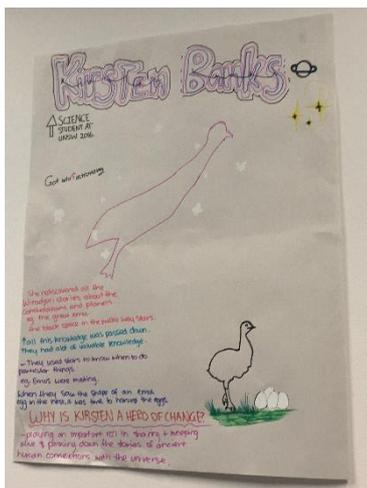 KiRSTen Banks
SCIENCE
STUDENT AT
UNSW 2016
Got into Astronomy
She rediscovered all the
Wiradjuri stories about the
constellations and planets
eg. the great emu.
the black space in the milky way stars.
all this knowledge was passed down.
they had alot of valuable knowledge.
- They used stars to know when to do
particular things.
eg. Emus were mating.
When they saw the shape of an emu
egg in the nest, it was time to harvest the eggs.
WHY IS KIRSTEN A HERO OF CHANGE?
- playing an important roll in sharing & keeping
alive & passing down the stories of ancient
human connections with the universe.